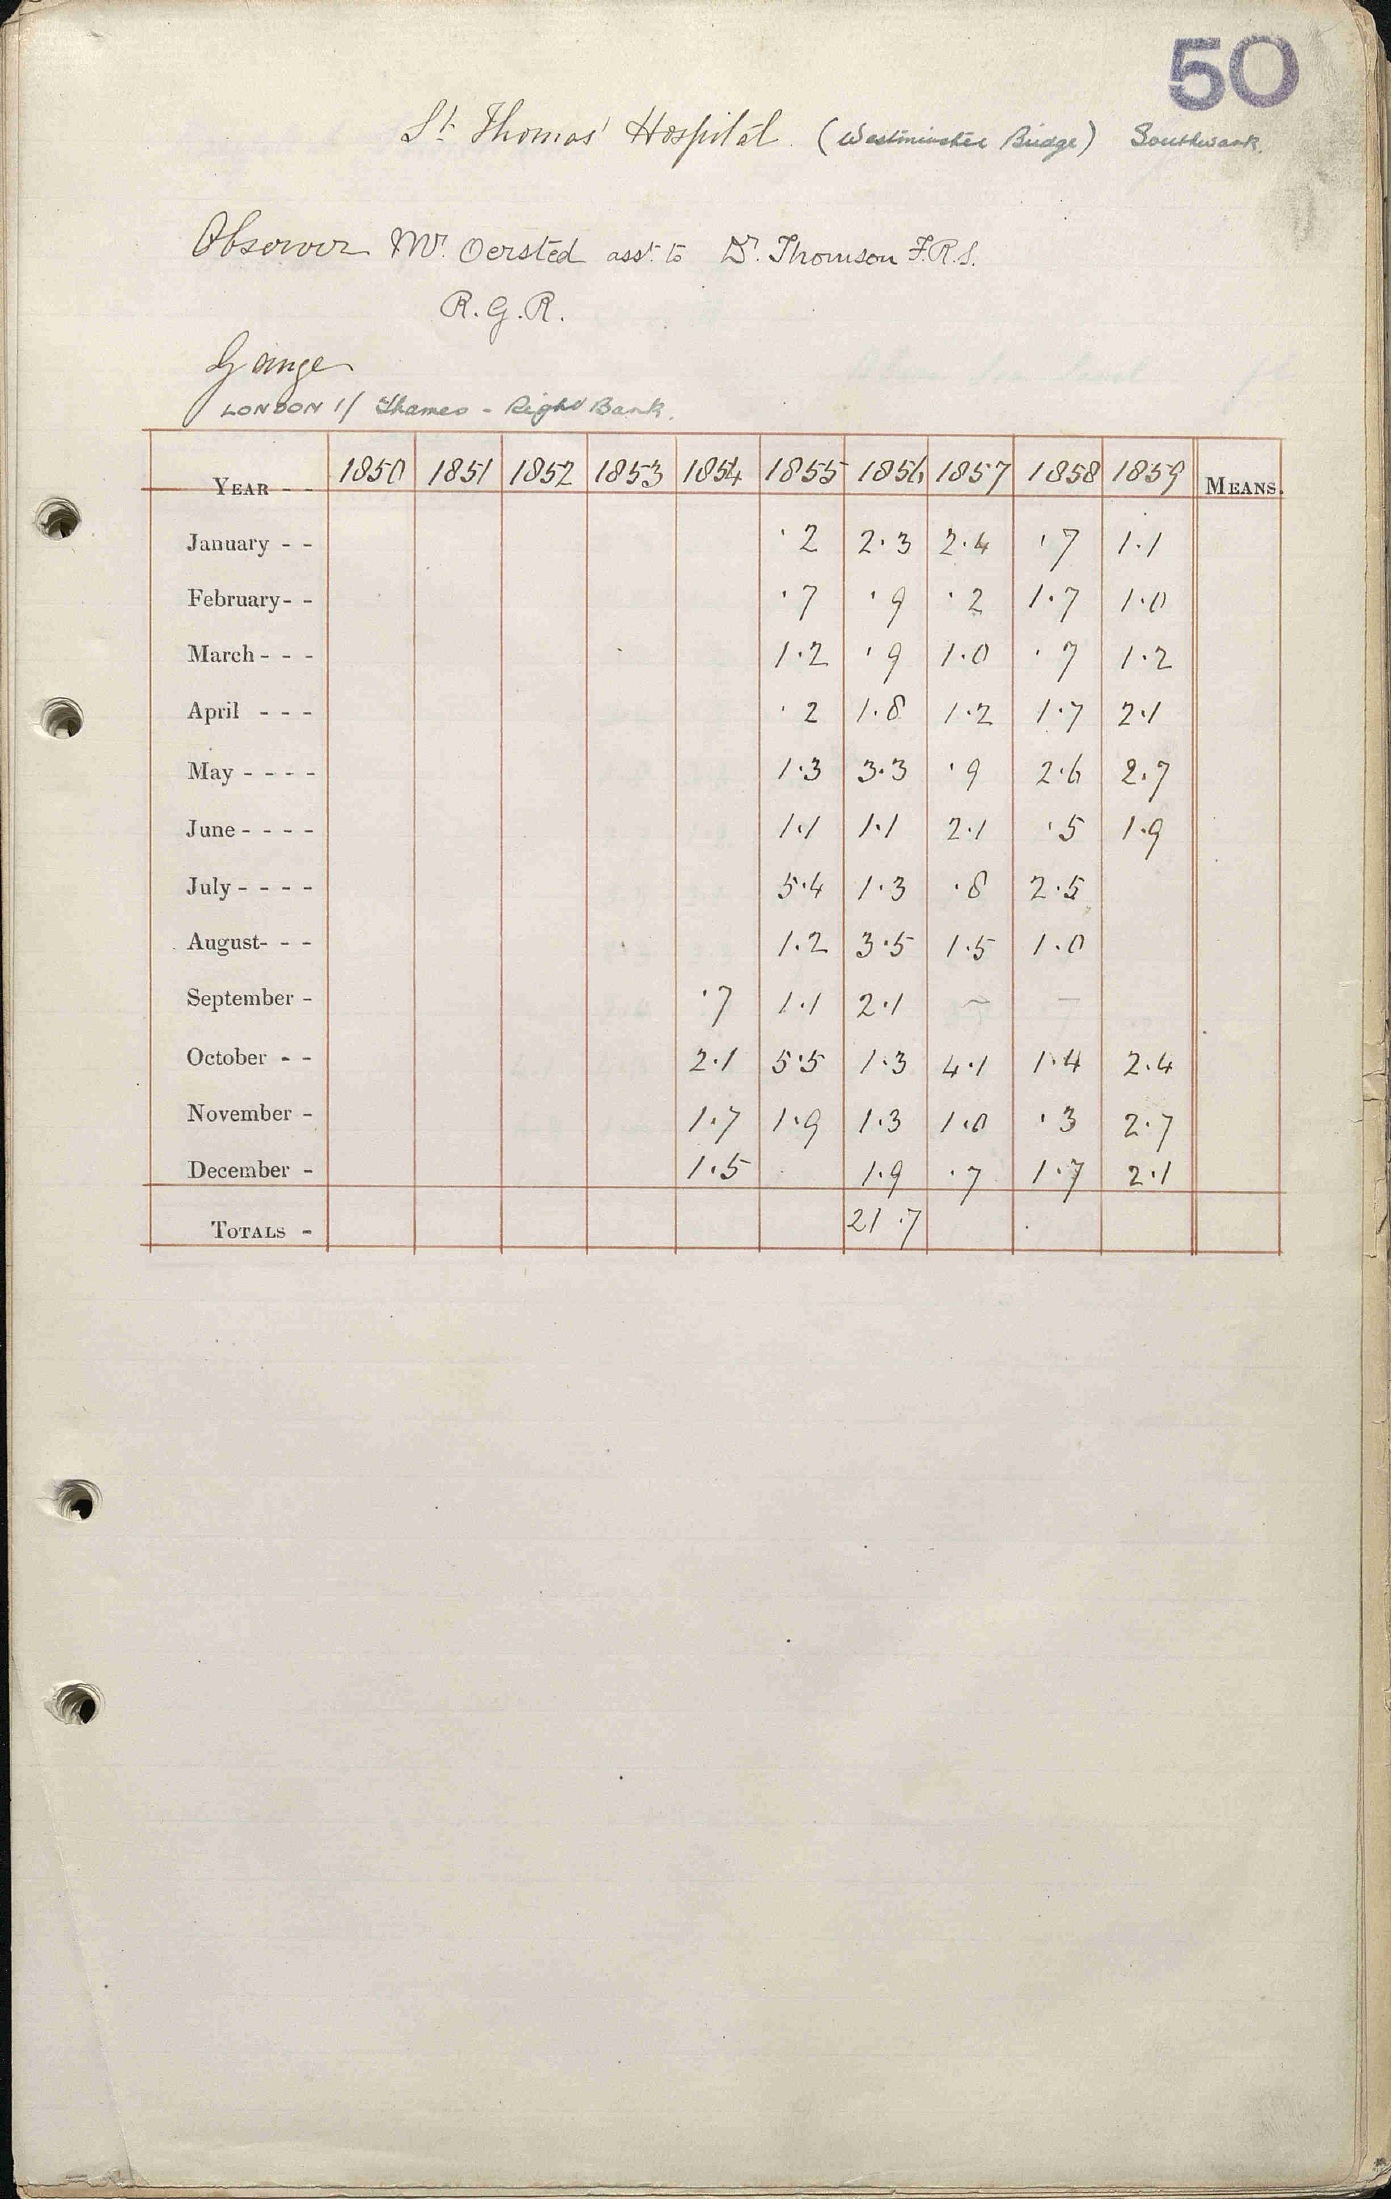 50
St. Thomas' Hospital. (Westminster Bridge) Southwark.
Observer Mr. Oersted asst. to Dr. Thomson F.R.S.
R.G.R.
Gauge
LONDON 1/ Thames - Right Bank.
YEAR - - 1850 1851 1852 1853 1854 1855 1856 1857 1858 1859 MEANS.
January - - ·2 2·3 2·4 ·7 1·1
February - - ·7 ·9 ·2 1·7 1·0
March - - - 1·2 ·9 1·0 ·7 1·2
April - - - ·2 1·8 1·2 1·7 2·1
May - - - - 1·3 3·3 ·9 2·6 2·7
June - - - - 1·1 1·1 2·1 ·5 1·9
July - - - - 5·4 1·3 ·8 2·5
August - - - 1·2 3·5 1·5 1·0
September - ·7 1·1 2·1 — —
October - - 2·1 5·5 1·3 4·1 1·4 2·4
November - 1·7 1·9 1·3 1·0 ·3 2·7
December - 1·5 1·9 ·7 1·7 2·1
TOTALS - 21·7